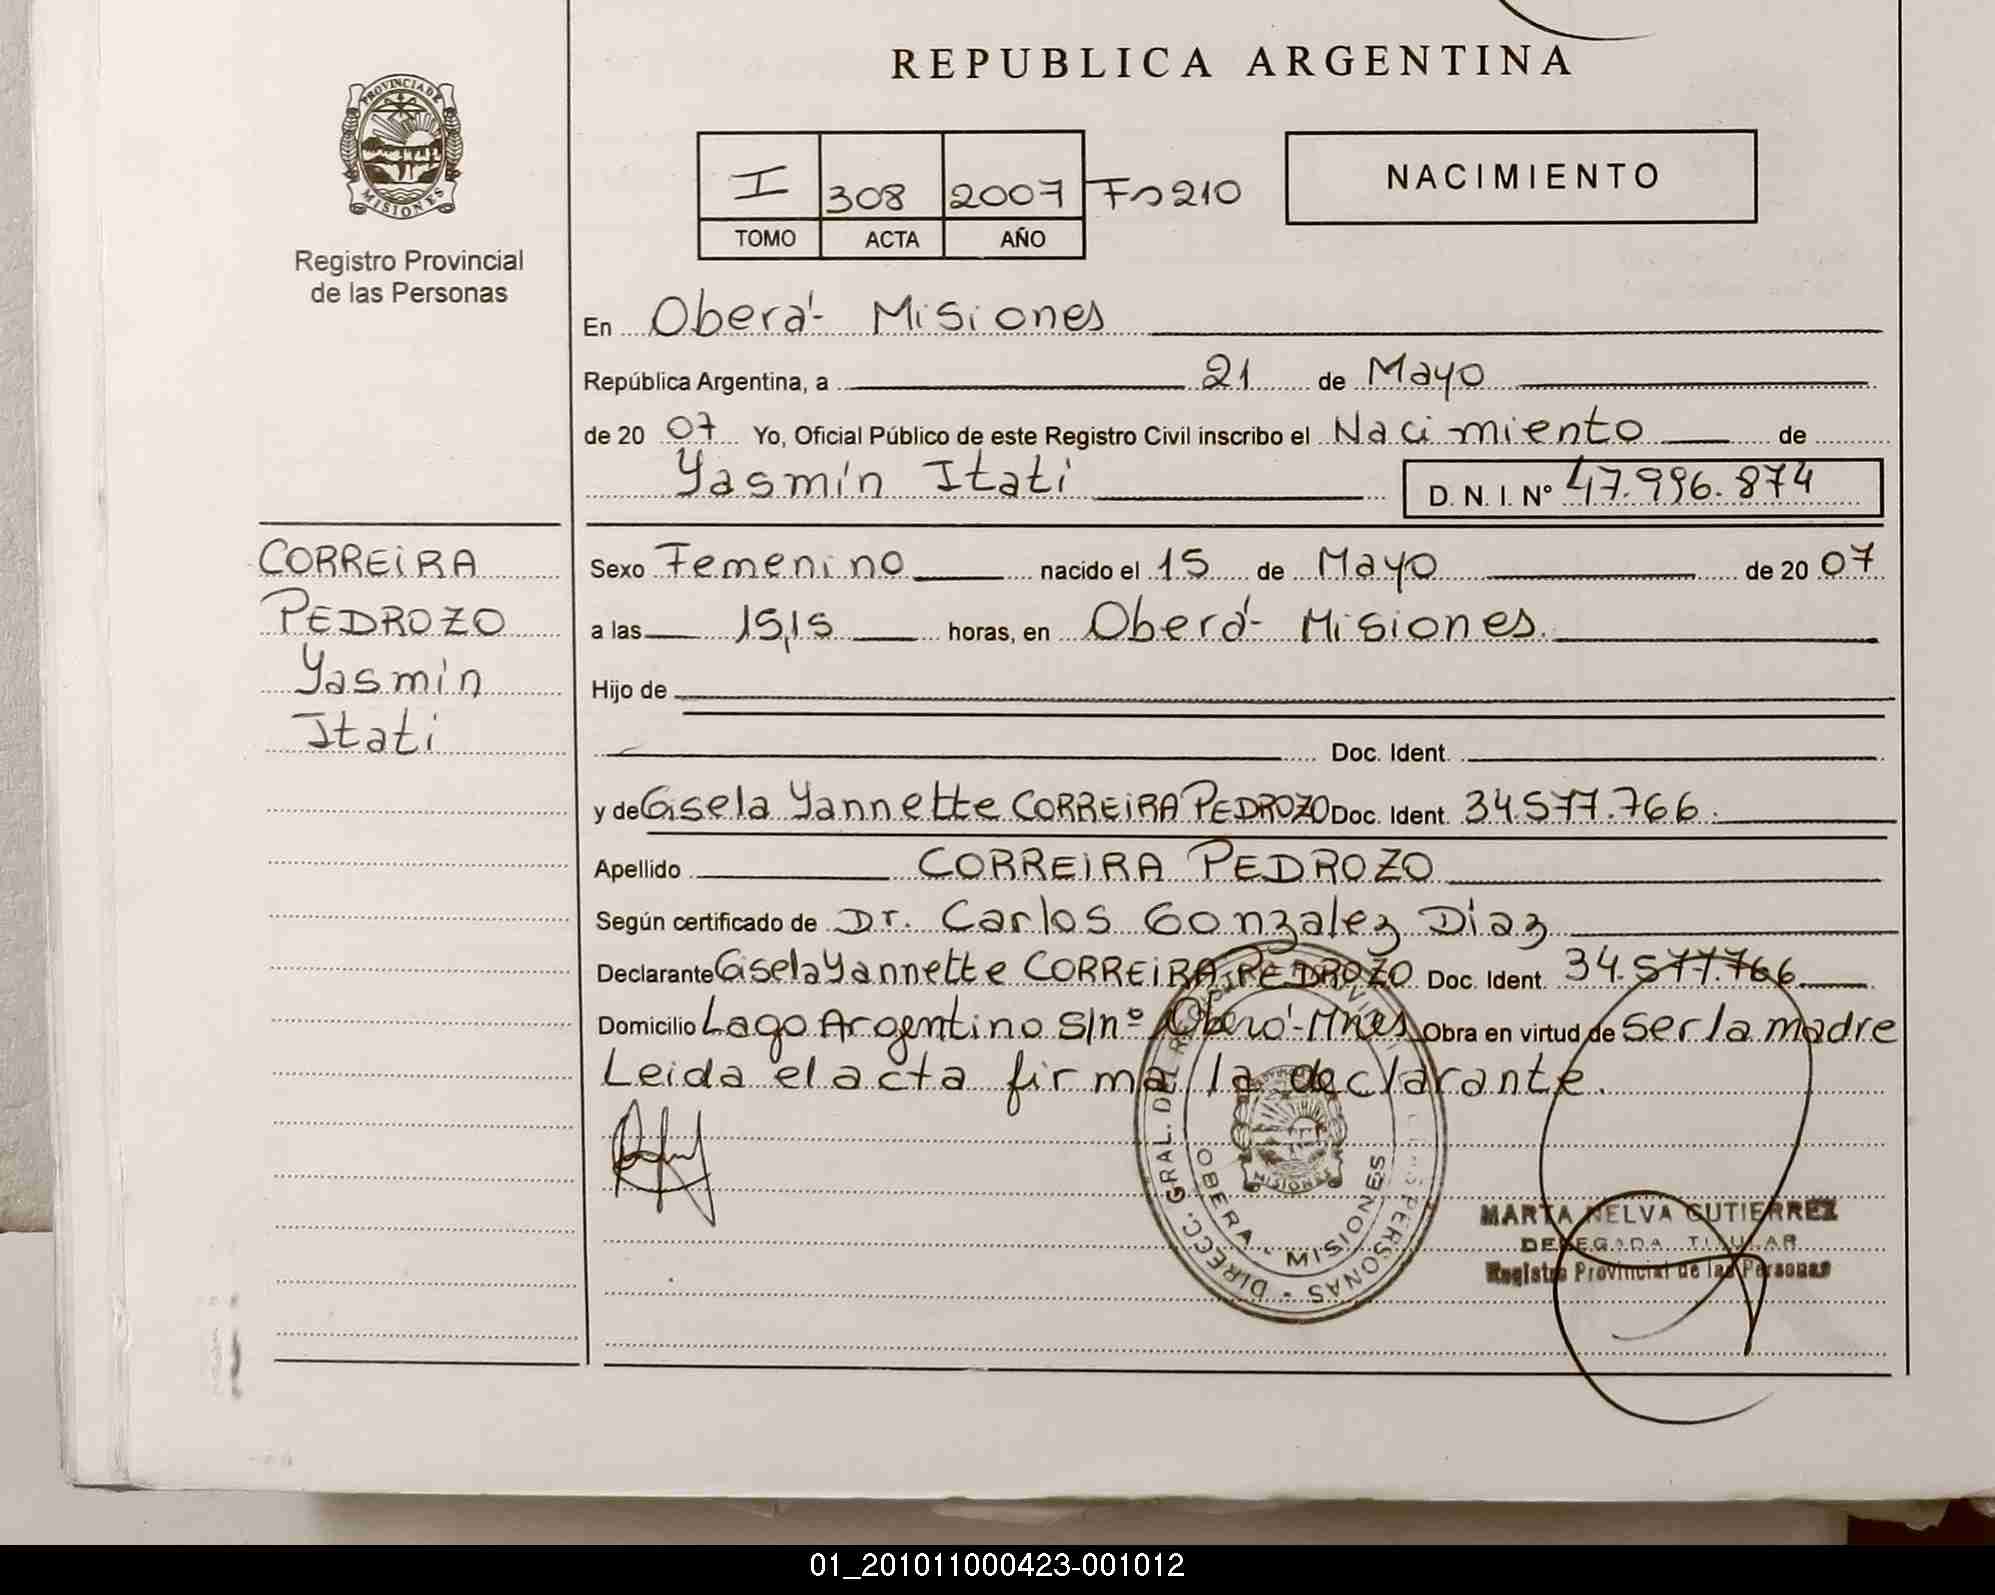 REPUBLICA ARGENTINA
PROVINCIA DE
MISIONES
Registro Provincial
de las Personas
I 308 2007 Fo 210
TOMO ACTA AÑO
NACIMIENTO
En Oberá - Misiones
República Argentina, a 21 de Mayo
de 20 07 Yo, Oficial Público de este Registro Civil inscribo el Nacimiento de
Yasmín Itati D. N. I. N° 47.996.874
CORREIRA
PEDROZO
Yasmín
Itati
Sexo Femenino nacido el 15 de Mayo de 20 07
a las 15,15 horas, en Oberá - Misiones.
Hijo de
Doc. Ident.
y de Gisela Yannette CORREIRA PEDROZO Doc. Ident. 34.577.766.
Apellido CORREIRA PEDROZO
Según certificado de Dr. Carlos Gonzalez Diaz
Declarante Gisela Yannette CORREIRA PEDROZO Doc. Ident. 34.577.766
Domicilio Lago Argentino S/nº Oberá - Mnes Obra en virtud de ser la madre
Leida el acta firma la declarante.
DIRECC. GRAL. DEL REGISTRO PROVINCIAL DE LAS PERSONAS -
OBERA - MISIONES
MISIONES
MARTA NELVA GUTIERREZ
DELEGADA TITULAR
Registro Provincial de las Personas
01_201011000423-001012